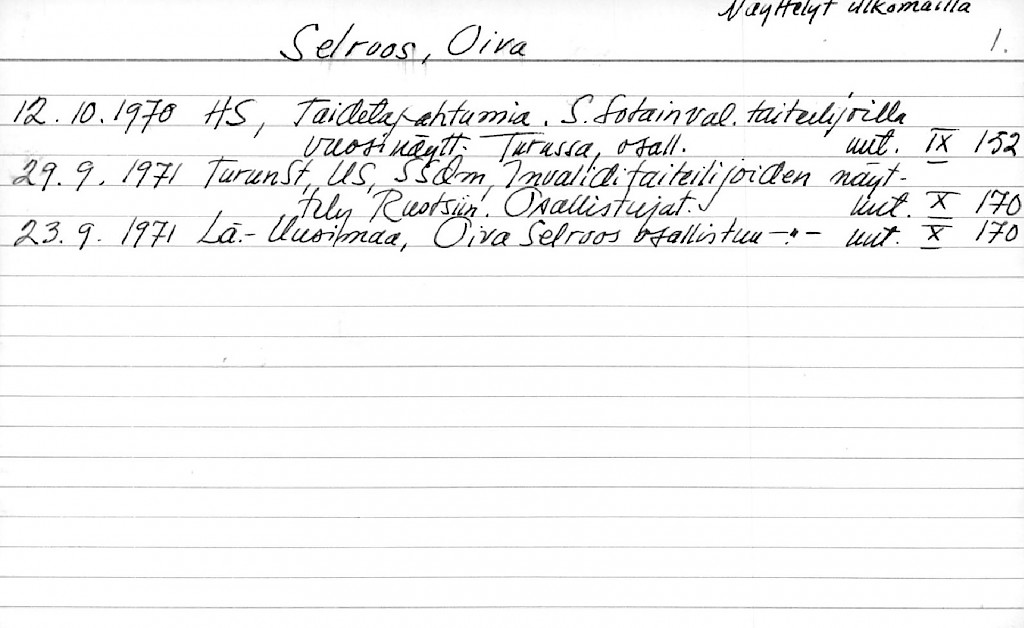 Näyttelyt ulkomailla
Selroos, Oiva 1.
12. 10. 1970 HS, Taidetapahtumia. S. Sotainval. taiteilijoilla
vuosinäytt. Turussa, osall. uut. IX 152
29. 9. 1971 TurunSt, US, SSdm, Invaliditaiteilijoiden näyt-
tely Ruotsiin. Osallistujat. uut. X 170
23. 9. 1971 Lä.- Uusimaa, Oiva Selroos osallistuu -"- uut. X 170